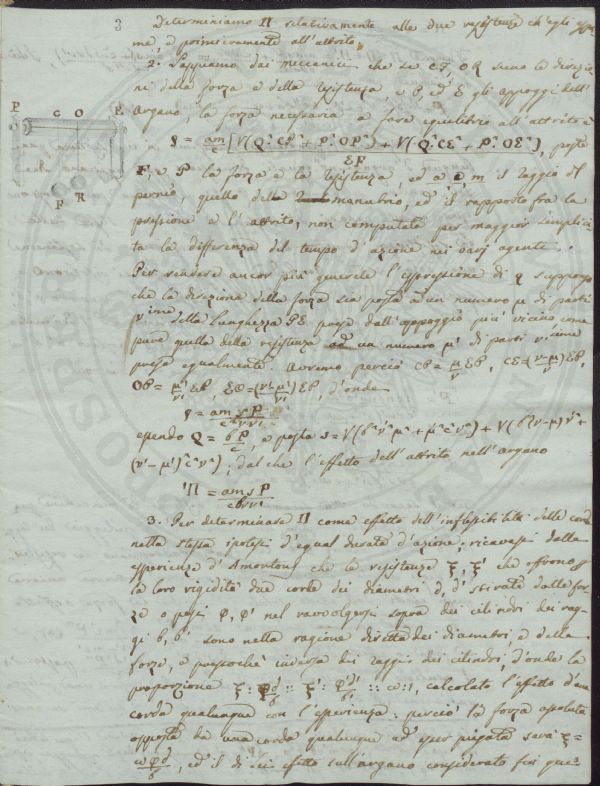 3
Determiniamo Π relativamente alle due resistenze ch'egli
me, e primieramente all'attrito.
2. Sappiamo dai meccanici, che se CF, OR sieno le direzio-
ni della forza e della resistenza, e P, ed E gli appoggi dell'
Argano, la forza necessaria a fare equilibrio all'attrito è
P C O E
F R
q = am[√(Q²CP² + P²OP²) + √(Q²CE² + P²OE²)], poste
EF
e P la forza e la resistenza, ed a m 'l raggio del
pernio, quello del manubrio, ed il rapporto fra la
pressione e l'attrito, non computata per maggior semplici-
tà la differenza del tempo d'azione nei varj agenti.
Per rendere ancor più l'espressione di q suppongo
che la direzione della forza sia posta a un numero μ di parti
ν sime della lunghezza PE presa dall'appoggio più vicino, come
pure quella della resistenza ad un numero μ' di parti ν' sime
prese egualmente. Avremo perciò CP = μ/ν EP, CE = (ν-μ)/ν EP,
OP = μ'/ν' EP, EO = (ν'-μ')/ν' EP, d'onde
q = amsP
cbνν'
essendo Q = bP/c, e posta s = √(b²ν'²μ² + μ'²c²ν²) + √(b²(ν-μ)²ν'² +
(ν'-μ')²c²ν²); dal che l'effetto dell'attrito nell'argano
'Π = amsP
cbνν'
3. Per determinare Π come effetto dell'inflessibilità delle corde
nella stessa ipotesi d'egual durata d'azione, ricavasi dalle
esperienze d'Amontons che le resistenze ξ, ξ' che offrono
la loro rigidità due corde dei diametri d, d' stirate dalle for-
ze o pesi φ, φ' nel ravvolgersi sopra dei cilindri dei rag-
gi b, b' sono nella ragione diretta dei diametri, e delle
forze, e pressochè inversa dei raggi dei cilindri; d'onde la
proporzione ξ : φd/b :: ξ' : φ'd'/b' :: ω : 1, calcolato l'effetto d'una
corda qualunque con l'esperienza: perciò la forza assoluta
opposta da una corda qualunque ad esser piegata sarà ξ =
ωφd/b, ed il di lei effetto sull'argano considerato fin que-